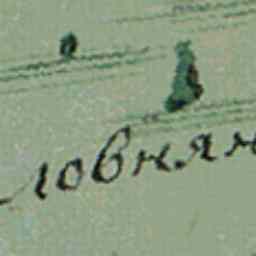 ловнян